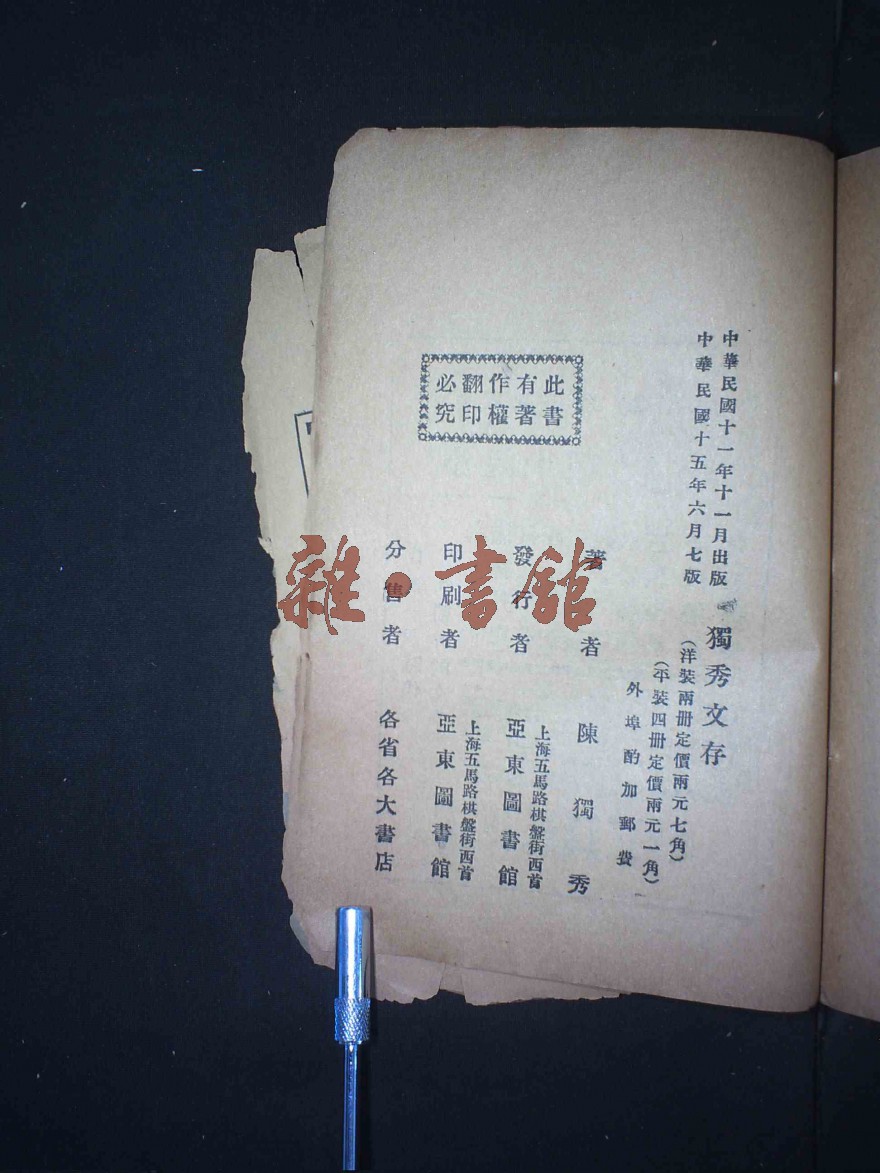 中華民國十一年十一月出版
中華民國十五年六月七版
獨秀文存
(洋裝兩册定價兩元七角)
(平裝四册定價兩元一角)
外埠酌加郵費
此書
有著
作權
翻印
必究
著者 陳獨秀
發行者 上海五馬路棋盤街西首
亞東圖書館
印刷者 上海五馬路棋盤街西首
亞東圖書館
分售者 各省各大書店
雜·書館